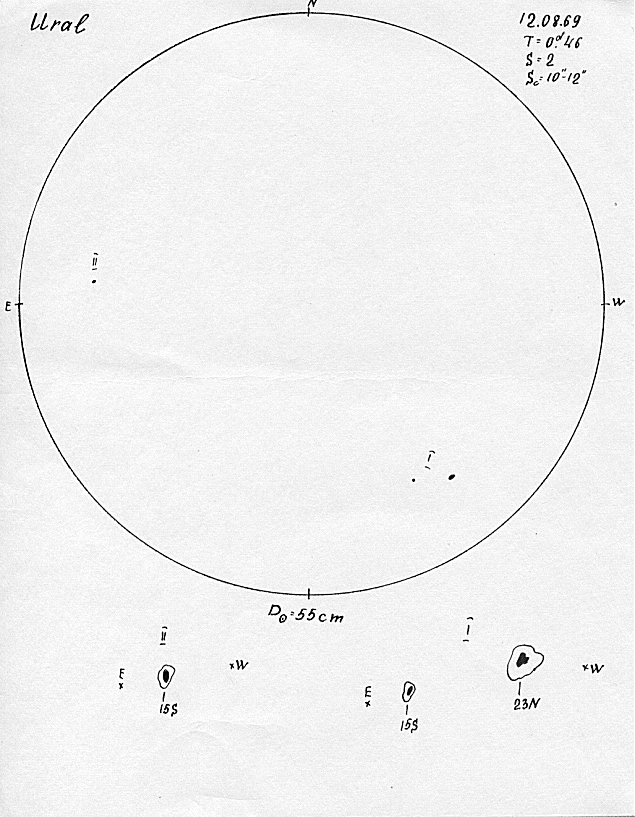 Ural
N
12.08.69
T = 0.ᵈ46
S = 2
S₀ = 10"-12"
II
E
W
I
D⊙ = 55 cm
II
I
E
×W
×
15S
E
×
15S
23N
×W